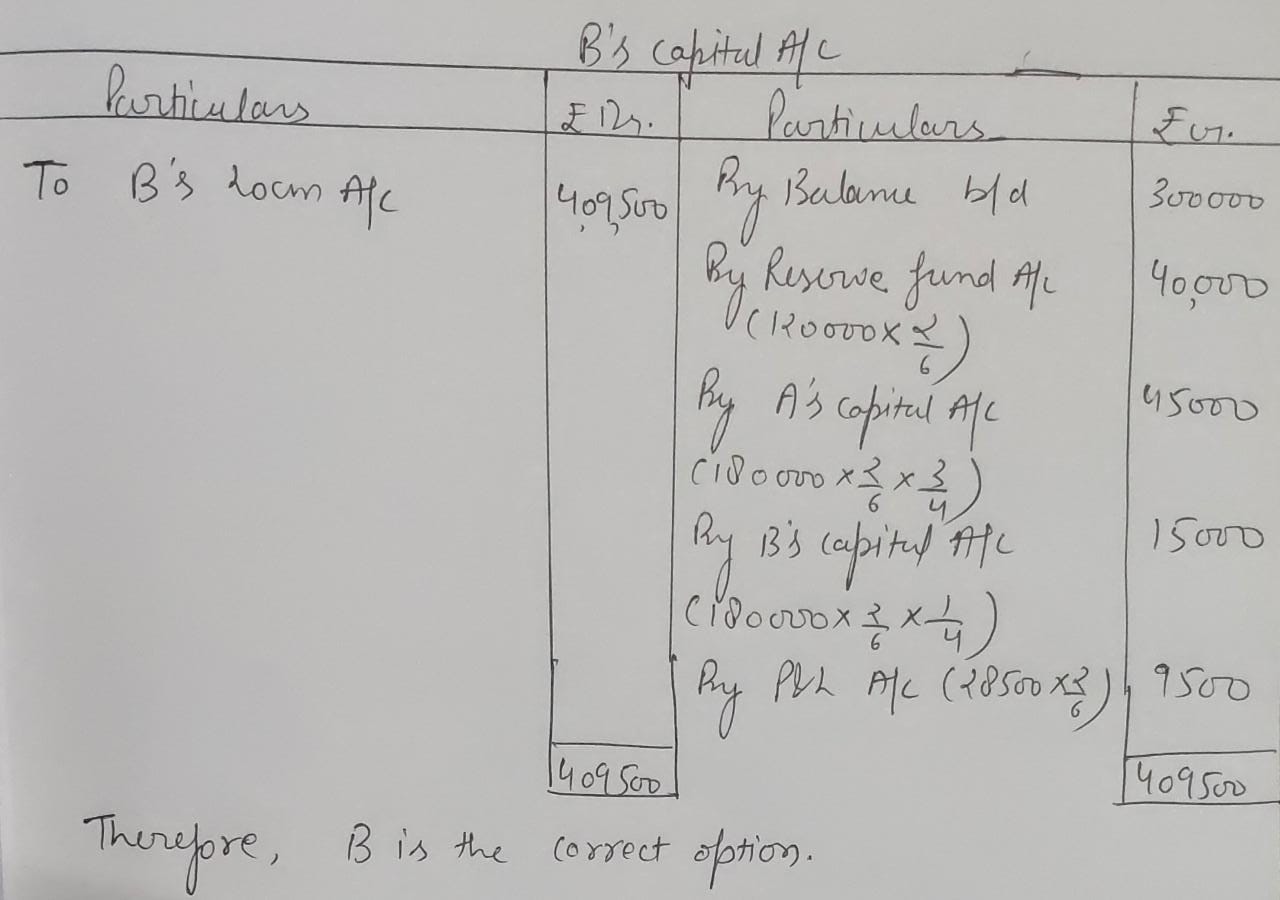 B's capital A/C
Particulars £ Dr. Particulars £ cr.
To B's loan A/C 409,500 By Balance b/d 300000
By Reserve fund A/c 40,000
(120000 x 2/6)
By A's capital A/C 45000
(180000 x 2/6 x 3/4)
By B's capital A/C 15000
(180000 x 2/6 x 1/4)
By P&L A/C (28500 x 2/6) 9500
409500 409500
Therefore, B is the correct option.